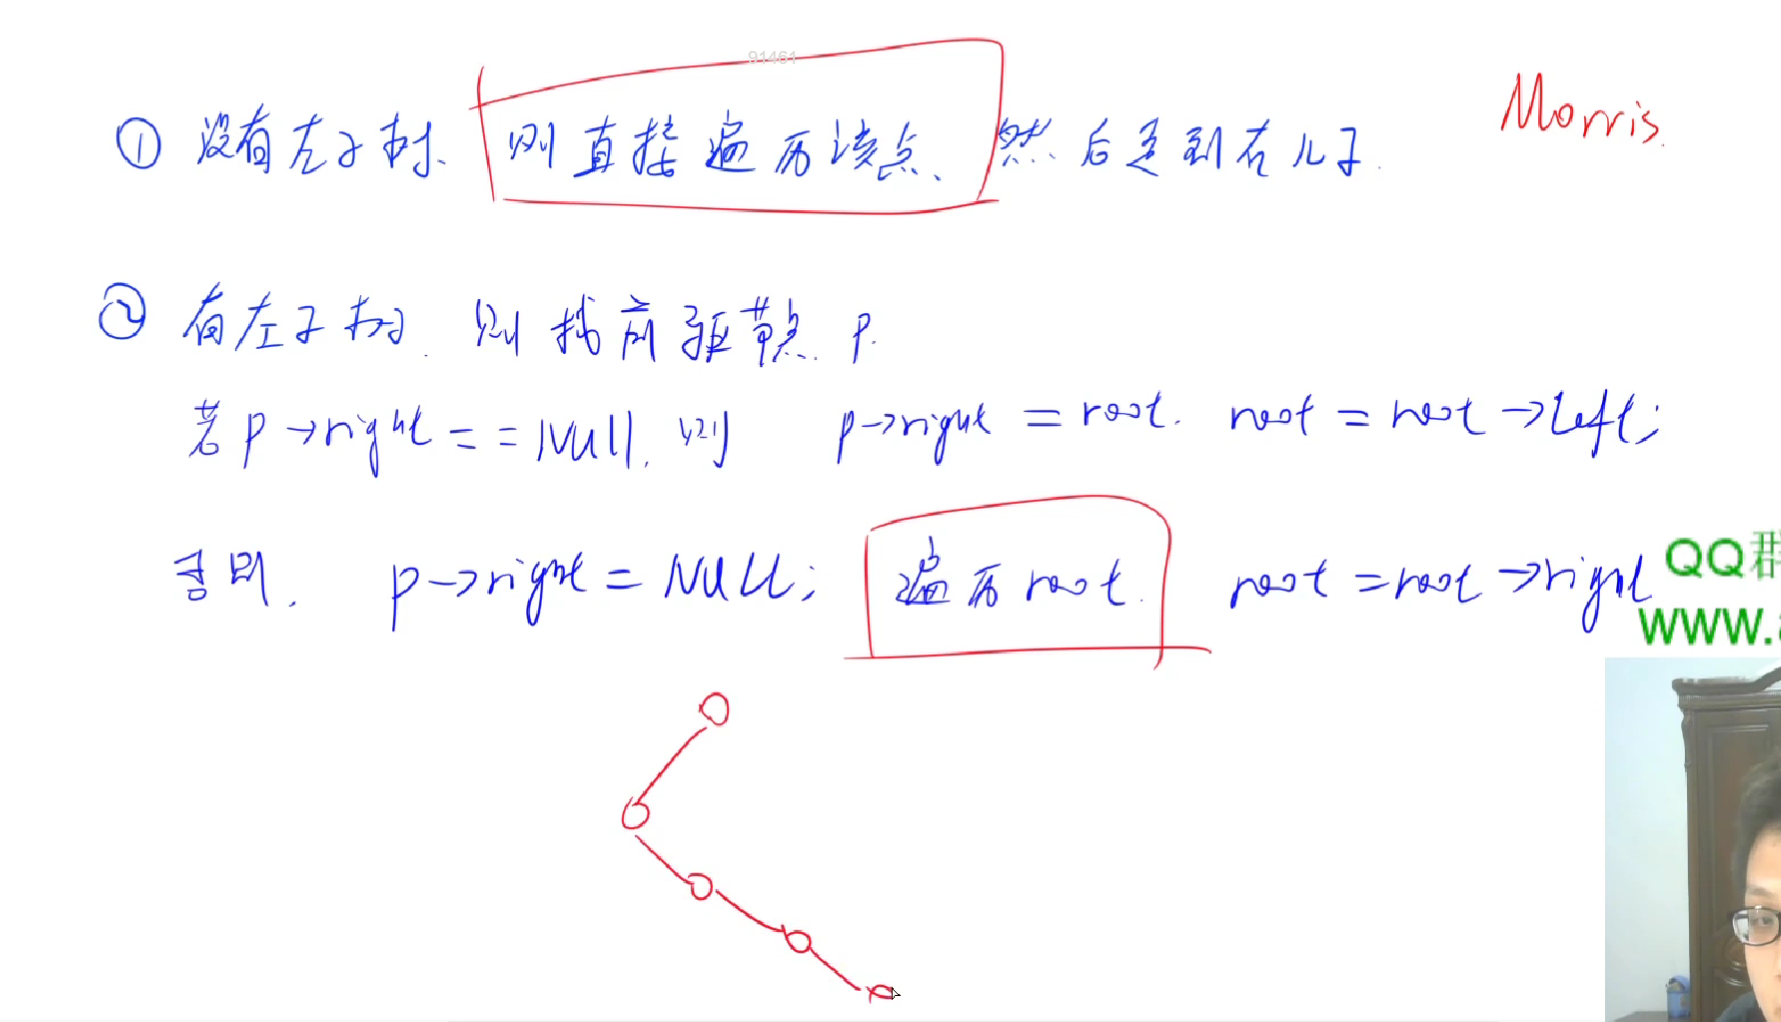 91461
Morris.
① 没有左子树、则直接遍历该点、然后走到右儿子.
② 有左子树. 则找前驱节点 p.
若 p->right == NUll, 则 p->right = root. root = root ->left;
否则. p->right = NULL; 遍历 root. root = root ->right
QQ群
www.a